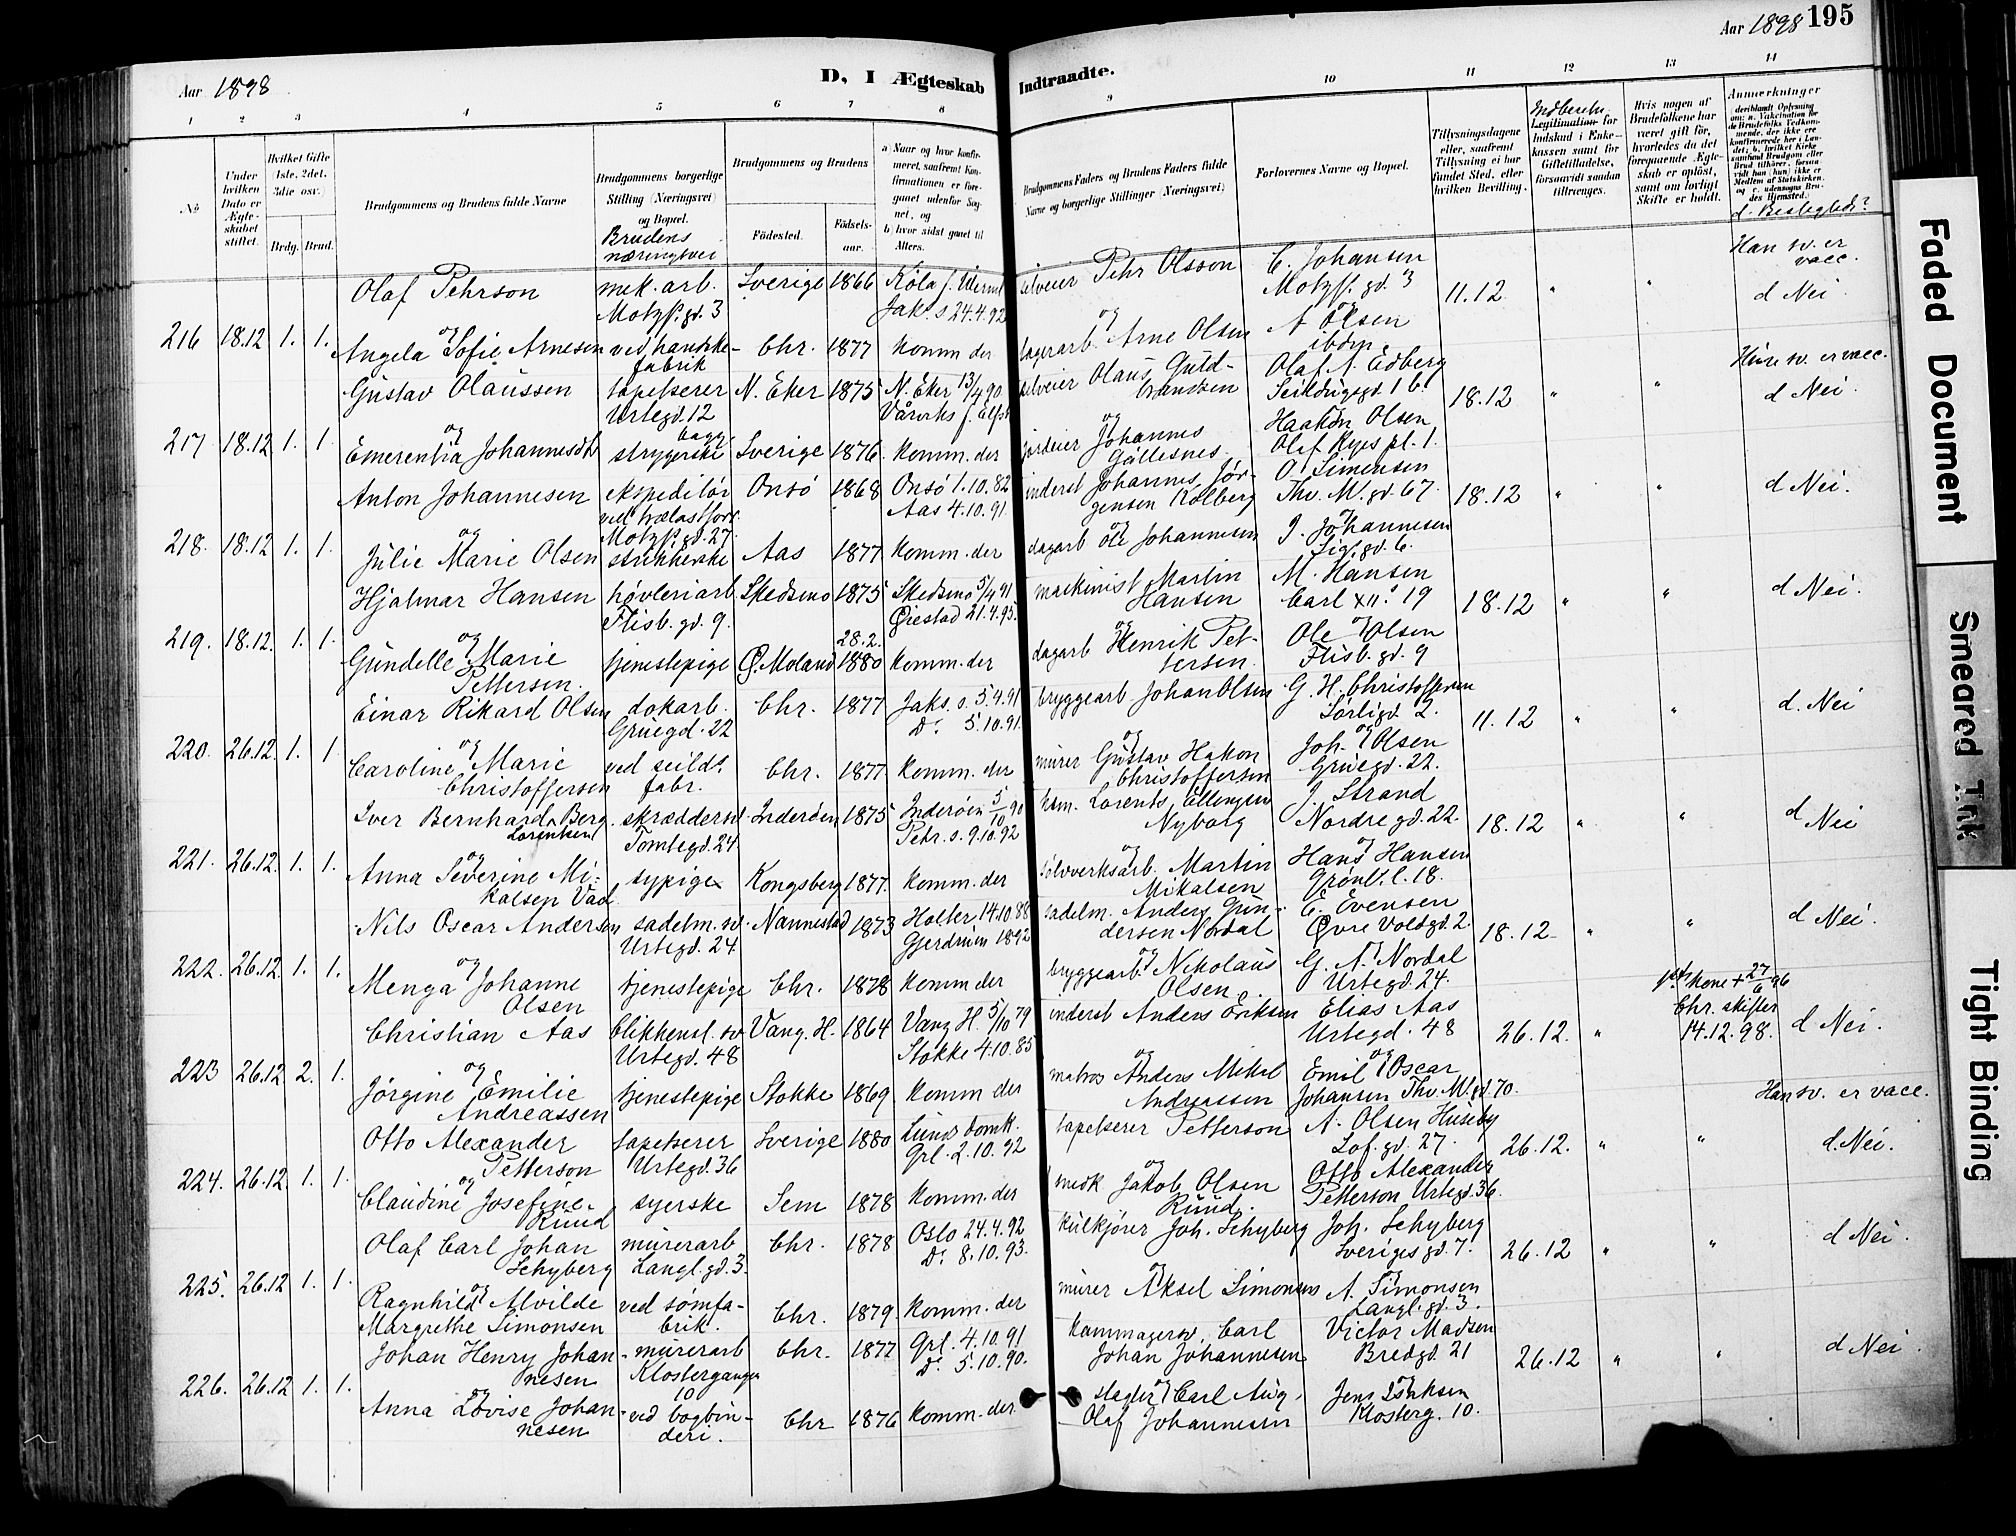 Aar 1898
D, I Ægteskab
Indtraadte.
Aar 1898 195
1 2 3 4 5 6 7 8
9 10 11 12 13 14
№
Under hvilken Dato er Ægteskabet stiftet.
Hvilket Gifte 1ste, 2det, 3die osv.)
Brdg. Brud.
Brudgommens og Brudens fulde Navne
Brudgommens borgerlige Stilling (Næringsvei) og Bopæl.
Brudens næringsvei
Brudgommens og Brudens
Fødested.
Fødsels-aar.
a) Naar og hvor konfirmeret, saafremt Konfirmationen er foregaaet udenfor Sognet, og
b) hvor sidst gaaet til Alters.
Brudgommens Faders og Brudens Faders fulde Navne og borgerlige Stillinger (Næringsvei)
Forlovernes Navne og Bopæl.
Tillysningsdagene eller, saafremt Tillysning ei har fundet Sted, efter hvilken Bevilling.
Legitimation for Indskud i Enkekassen samt for Giftetilladelse, forsaavidt saadan tiltrænges.
Hvis nogen af Brudefolkene har været gift før, hvorledes da det foregaaende Ægteskab er opløst, samt om lovligt Skifte er holdt.
Anmærkninger
deriblandt Oplysning om: a. Vakcination for de Brudefolks Vedkommende, der ikke ere konfirmerede her i Landet; b. hvilket Kirkesamfund Brudgom eller Brud tilhører, forsaavidt han (hun) ikke er Medlem af Statskirken, og c. udensogns Brudes Hjemsted.
d. Beslegtede?
Olaf Pehrson mek. arb. Sverige 1866 Köla f. Verml. selveier Pehr Olsson C. Johansen 11.12 " " Han sv. er vacc.
Motzf. gd. 3 Jak. s 24.4.92 Motzf. gd. 3 d Nei
216 18.12 1. 1. og og og
Angela Sofie Arnesen ved hanske- Chr. 1877 komm. der lagerarb. Arne Olsen A Olsen
fabrik ibdm
Gustav Olaussen tapetserer N. Eker 1875 N. Eker 13/4 90 selveier Olaus Guld- Olaf A. Edberg 18.12 " " Hun sv. er vacc.
Urtegd. 12 brandsen Seildugsgd 16 d Nei.
217 18.12 1. 1 og og
Emerentia Johannesdtr. strygerske Sverige 1876 komm. der jordeier Johannes Haakon Olsen
Gällesnes Olaf Ryes pl. 1.
Anton Johannesen ekspeditør Onsö 1868 Onsö 1.10.82 inderst Johannes Jør- O. Simensen 18.12 " " d Nei.
ved trælastforr. Aas 4.10.91 gensen Kolberg Thv. M. gd. 67.
Motzf. gd. 27.
218. 18.12 1. 1. og og
Julie Marie Olsen strikkerske Aas 1877 komm. der dagarb Ole Johannesen J. Johannesen
Sig. gd. 6.
Hjalmar Hansen høvleriarb Skedsmo 1875 Skedsmo 5/4 91 maskinist Martin M. Hansen 18.12 " " d Nei.
Flisb. gd. 9. Øiestad 21.4.95. Hansen Carl XII.s 19
219. 18.12. 1. 1. og 28.2. og og
Gundelle Marie tjenestepige Ø. Moland 1880 komm. der dagarb Henrik Pet- Ole Olsen
Pettersen. tersen. Flisb. gd. 9
Einar Rikard Olsen dokarb. Chr. 1877 Jaks. s. 5.4.91 bryggearb Johan Olsen G. H. Christoffersen 11.12 " " d. Nei
Grüegd. 22 Do. 5.10.91. Sörligd 2.
220. 26.12. 1. 1. og og og
Caroline Marie ved seilds. Chr. 1877 komm. der murer Gustav Hakon Joh. Olsen
Christoffersen fabr. Christoffersen Grüegd. 22.
Iver Bernhard Berg skræddersv. Inderöen 1875 Inderöen 5/10 90 hsm. Lorents Ellingsen J. Strand 18.12 " " d Nei
Lorentsen Tomtegd. 24 Petr. s. 9.10.92 Nyborg Nordregd. 22.
221. 26.12. 1. 1. og og og
Anna Severine Mi- sypige Kongsberg 1877. komm. der sölvverksarb. Martin Hans Hansen
kalsen Vad. Mikalsen Grönl. l. 18.
Nils Oscar Andersen sadelm. sv. Nannestad 1873 Holter 14.10.88 sadelm. Anders Gun- E. Evensen 18.12 " " d Nei.
Urtegd. 24 Gjerdrum 1892 dersen Nordal Øvre Voldgd. 2.
222. 26.12 1. 1. og og og
Menga Johanne tjenestepige Chr. 1878 komm der bryggearb. Nikolaus G. A. Nordal
Olsen Olsen. Urtegd. 24.
Christian Aas blikkensl. sv Vang. H. 1864 Vang H. 5/10 79 inderst Anders Eriksen Elias Aas 26.12. " 1ste kone + 27/6 96
Urtegd. 48 Stokke 4.10.85 Urtegd. 48 Chr. skifter 14.12.98. d Nei.
223 26.12 2. 1. og og og
Jörgine Emilie tjenestepige Stokke 1869 komm der matros Anders Mikal Emil Oscar
Andreassen Andreassen Johansen Thv. M. gd. 70.
Otto Alexander tapetserer Sverige 1880 Lunds domk. tapetserer Petterson A. Olsen Huseby 26.12. " " Han sv. er vacc.
Petterson Urtegd. 36 Grl. 2.10.92 Lof. gd. 27. d. Nei.
224. 26.12. 1. 1. og og
Claudine Josefine syerske Sem 1878 komm. der smedk Jakob Olsen Otto Alexander
Ruud Ruud. Petterson Urtegd. 36.
Olaf Carl Johan murerarb Chr. 1878 Oslo 24.4.92 kulkjörer Joh. Schyberg Joh. Schyberg 26.12 " " d Nei.
Schyberg Langl. gd. 3. Do. 8.10.93. Sverigesgd. 7.
225. 26.12 1. 1. og og og
Ragnhild Alvilde ved sömfa- Chr. 1879 komm. der murer Aksel Simonsen A. Simonsen
Margrethe Simonsen brik. Langl. gd. 3.
Johan Henry Johan- murerarb Chr. 1877 Grl. 4.10.91 kammagersv. Carl Victor Madsen 26.12 " " d Nei.
nesen Klostergangen 10 Do. 5.10.90. Johan Johannesen Bredgd. 21
226. 26.12 1. 1. og og og
Anna Lovise Johan- ved bogbin- Chr 1876 komm. der slagter Carl Aug. Jens Isaksen
nesen deri. Olaf Johannesen Klosterg. 10.
Faded Document
Smeared Ink
Tight Binding